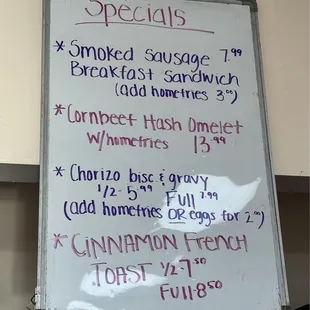 Specials
* Smoked Sausage 7.99
Breakfast Sandwich
(add homefries 3.00)
* Cornbeef Hash Omelet
w/homefries 13.99
* Chorizo bisc & gravy
1/2-5.99 Full 7.99
(add homefries OR eggs for 2.00)
* CINNAMON French
TOAST 1/2-7.50
Full-8.50